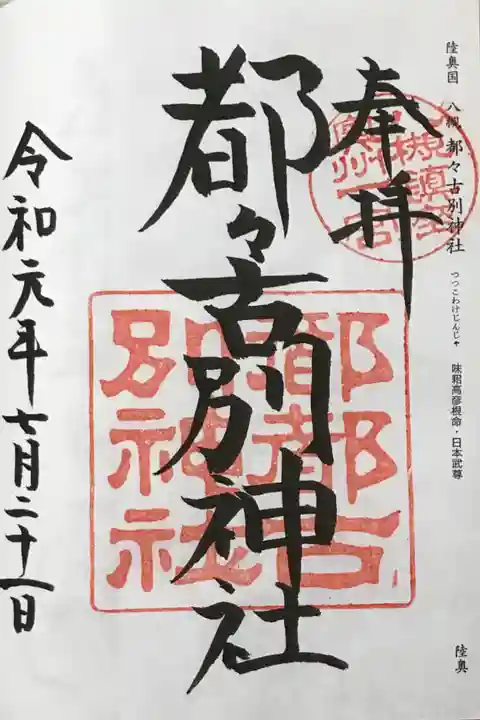 陸奥国 八槻都々古別神社 つつこわけじんじゃ 味耜高彦根命・日本武尊
陸奥
奉拝
都々古別神社
令和元年七月二十一日
都都古
別神社